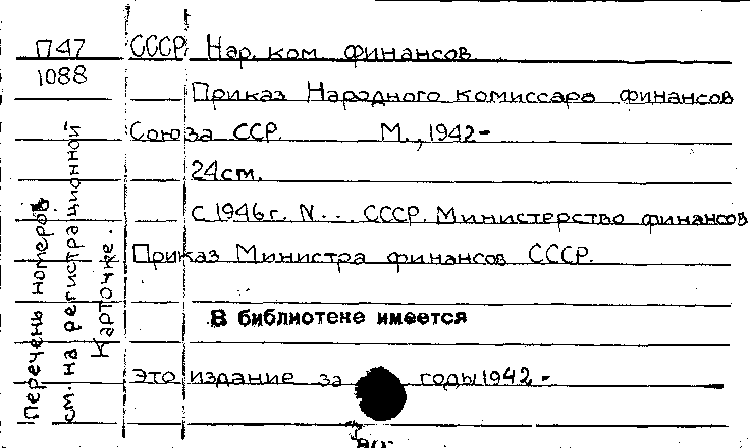 П47
1088
СССР. Нар. ком. финансов
Приказ Народного комиссара финансов
Союза ССР. М., 1942-
24 см.
с 1946 г. N... СССР. Министерство финансов
Приказ Министра финансов СССР.
В библиотеке имеется
это издание за годы 1942-
Перечень номеров
см. на регистрационной
карточке.